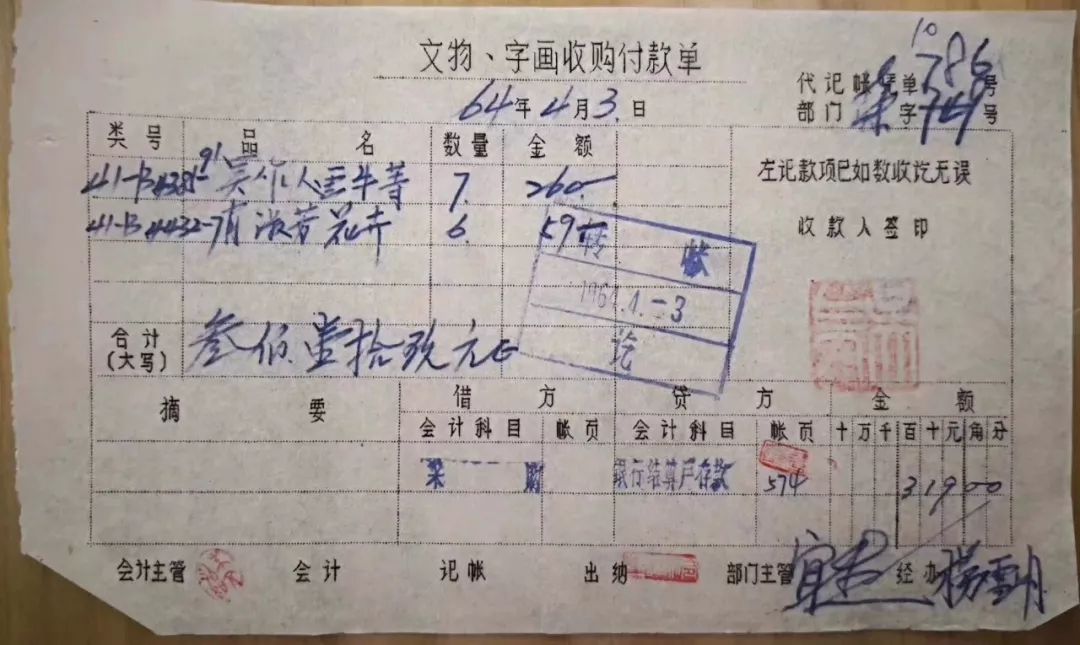 文物、字画收购付款单
64年4月3日
代记帐凭单10786号
部门 字 号
类号 品名 数量 金额
41-B4381-91 吴作人墨牛等 7. 260
41-B4432- 花卉 6. 59
左记款项已如数收讫无误
收款人签印
转帐
1964.4.-3
讫
合计(大写) 叁佰壹拾玖元正
摘要 借方 贷方 金额
会计科目 帐页 会计科目 帐页 十万千百十元角分
采购 银行结算户存款 574 31900
会计主管 会计 记帐 出纳 部门主管 经办